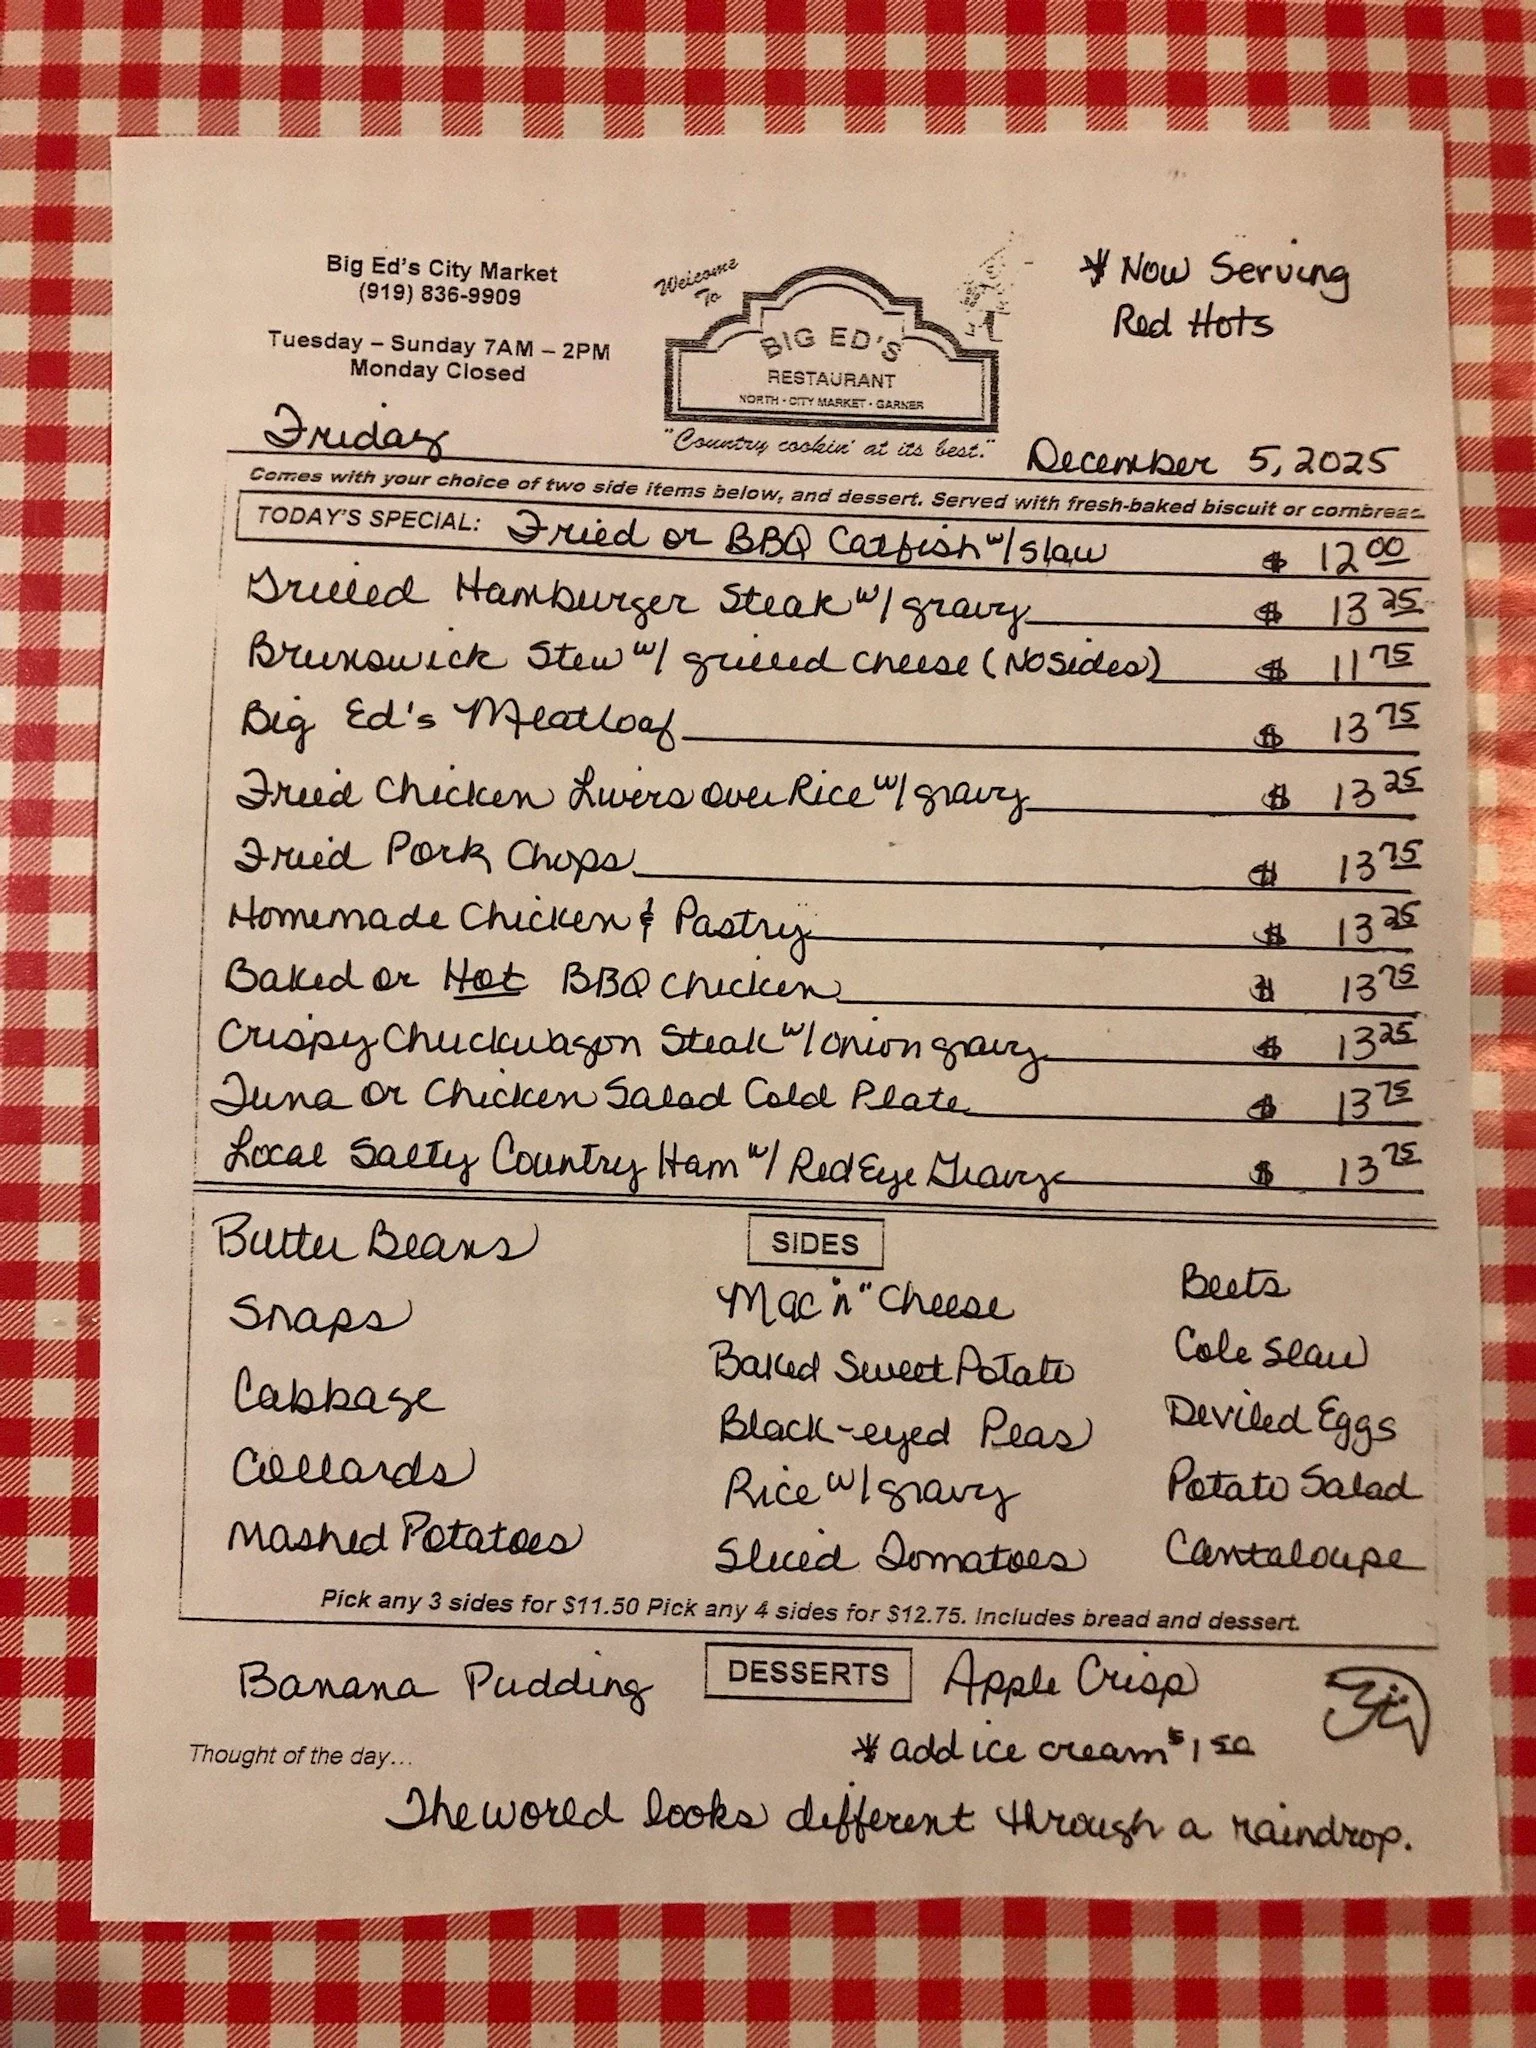 Big Ed's City Market
(919) 836-9909
Tuesday – Sunday 7AM – 2PM
Monday Closed
Welcome
To
BIG ED'S
RESTAURANT
NORTH · CITY MARKET · GARNER
"Country cookin' at its best."
* Now Serving
Red Hots
Friday
December 5, 2025
Comes with your choice of two side items below, and dessert. Served with fresh-baked biscuit or cornbread.
TODAY'S SPECIAL: Fried or BBQ Catfish w/ slaw $ 12 00
Grilled Hamburger Steak w/ gravy $ 13 25
Brunswick Stew w/ grilled cheese (No Sides) $ 11 75
Big Ed's Meatloaf $ 13 75
Fried Chicken Livers over Rice w/ gravy $ 13 25
Fried Pork Chops $ 13 75
Homemade Chicken & Pastry $ 13 25
Baked or Hot BBQ chicken $ 13 75
Crispy Chuckwagon Steak w/ onion gravy $ 13 25
Tuna or Chicken Salad Cold Plate $ 13 75
Local Salty Country Ham w/ Red Eye Gravy $ 13 75
SIDES
Butter Beans
Snaps
Cabbage
Collards
Mashed Potatoes
Mac "n" Cheese
Baked Sweet Potato
Black-eyed Peas
Rice w/ gravy
Sliced Tomatoes
Beets
Cole Slaw
Deviled Eggs
Potato Salad
Cantaloupe
Pick any 3 sides for $11.50 Pick any 4 sides for $12.75. Includes bread and dessert.
Banana Pudding
DESSERTS
Apple Crisp
* add ice cream $1 50
Thought of the day...
The world looks different through a raindrop.